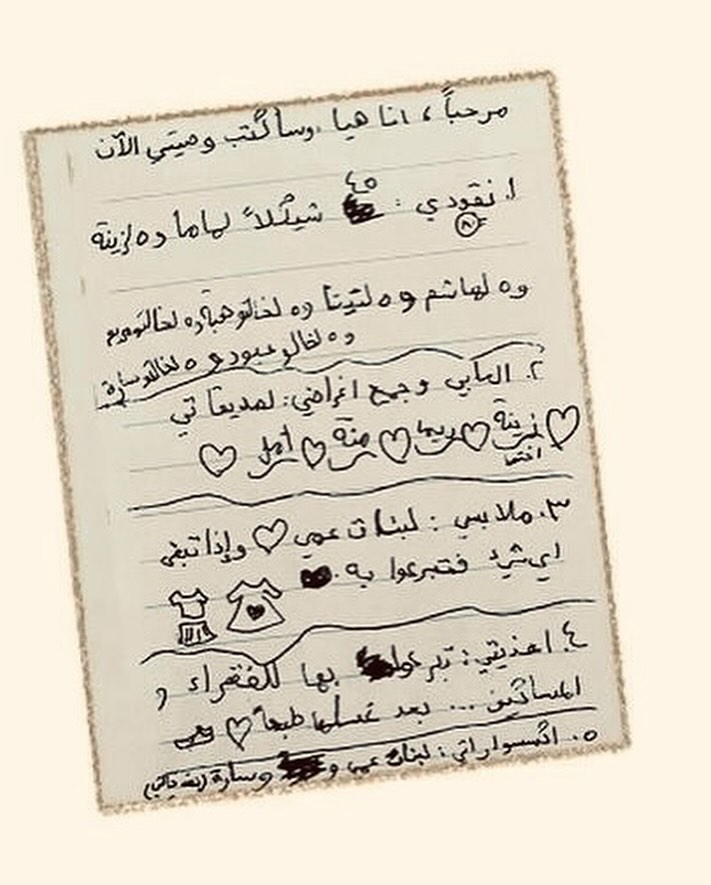 مرحباً ، انا هيا ،وسأكتب وصيتي الآن
٤٥
١. نقودي : شيكلاً لماما و ٥ لزينة
٨٠
و ٥ لهاشم و ٥ لتيتا و ٥ لخالتو هبة و ٥ لخالتو مريم
و ٥ لخالو عبود و ٥ لخالتو سارة
٢. العابي وجميع اغراضي: لصديقاتي
زينة ريما منة أمل
اختي
٣. ملابسي : لبنات عمي وإذا تبقى
اي شيء فتبرعوا به.
٤. احذيتي : تبرعوا بها للفقراء و
المساكين ... بعد غسلها طبعاً
٥. اكسسواراتي : لبنات عمي و وسارة